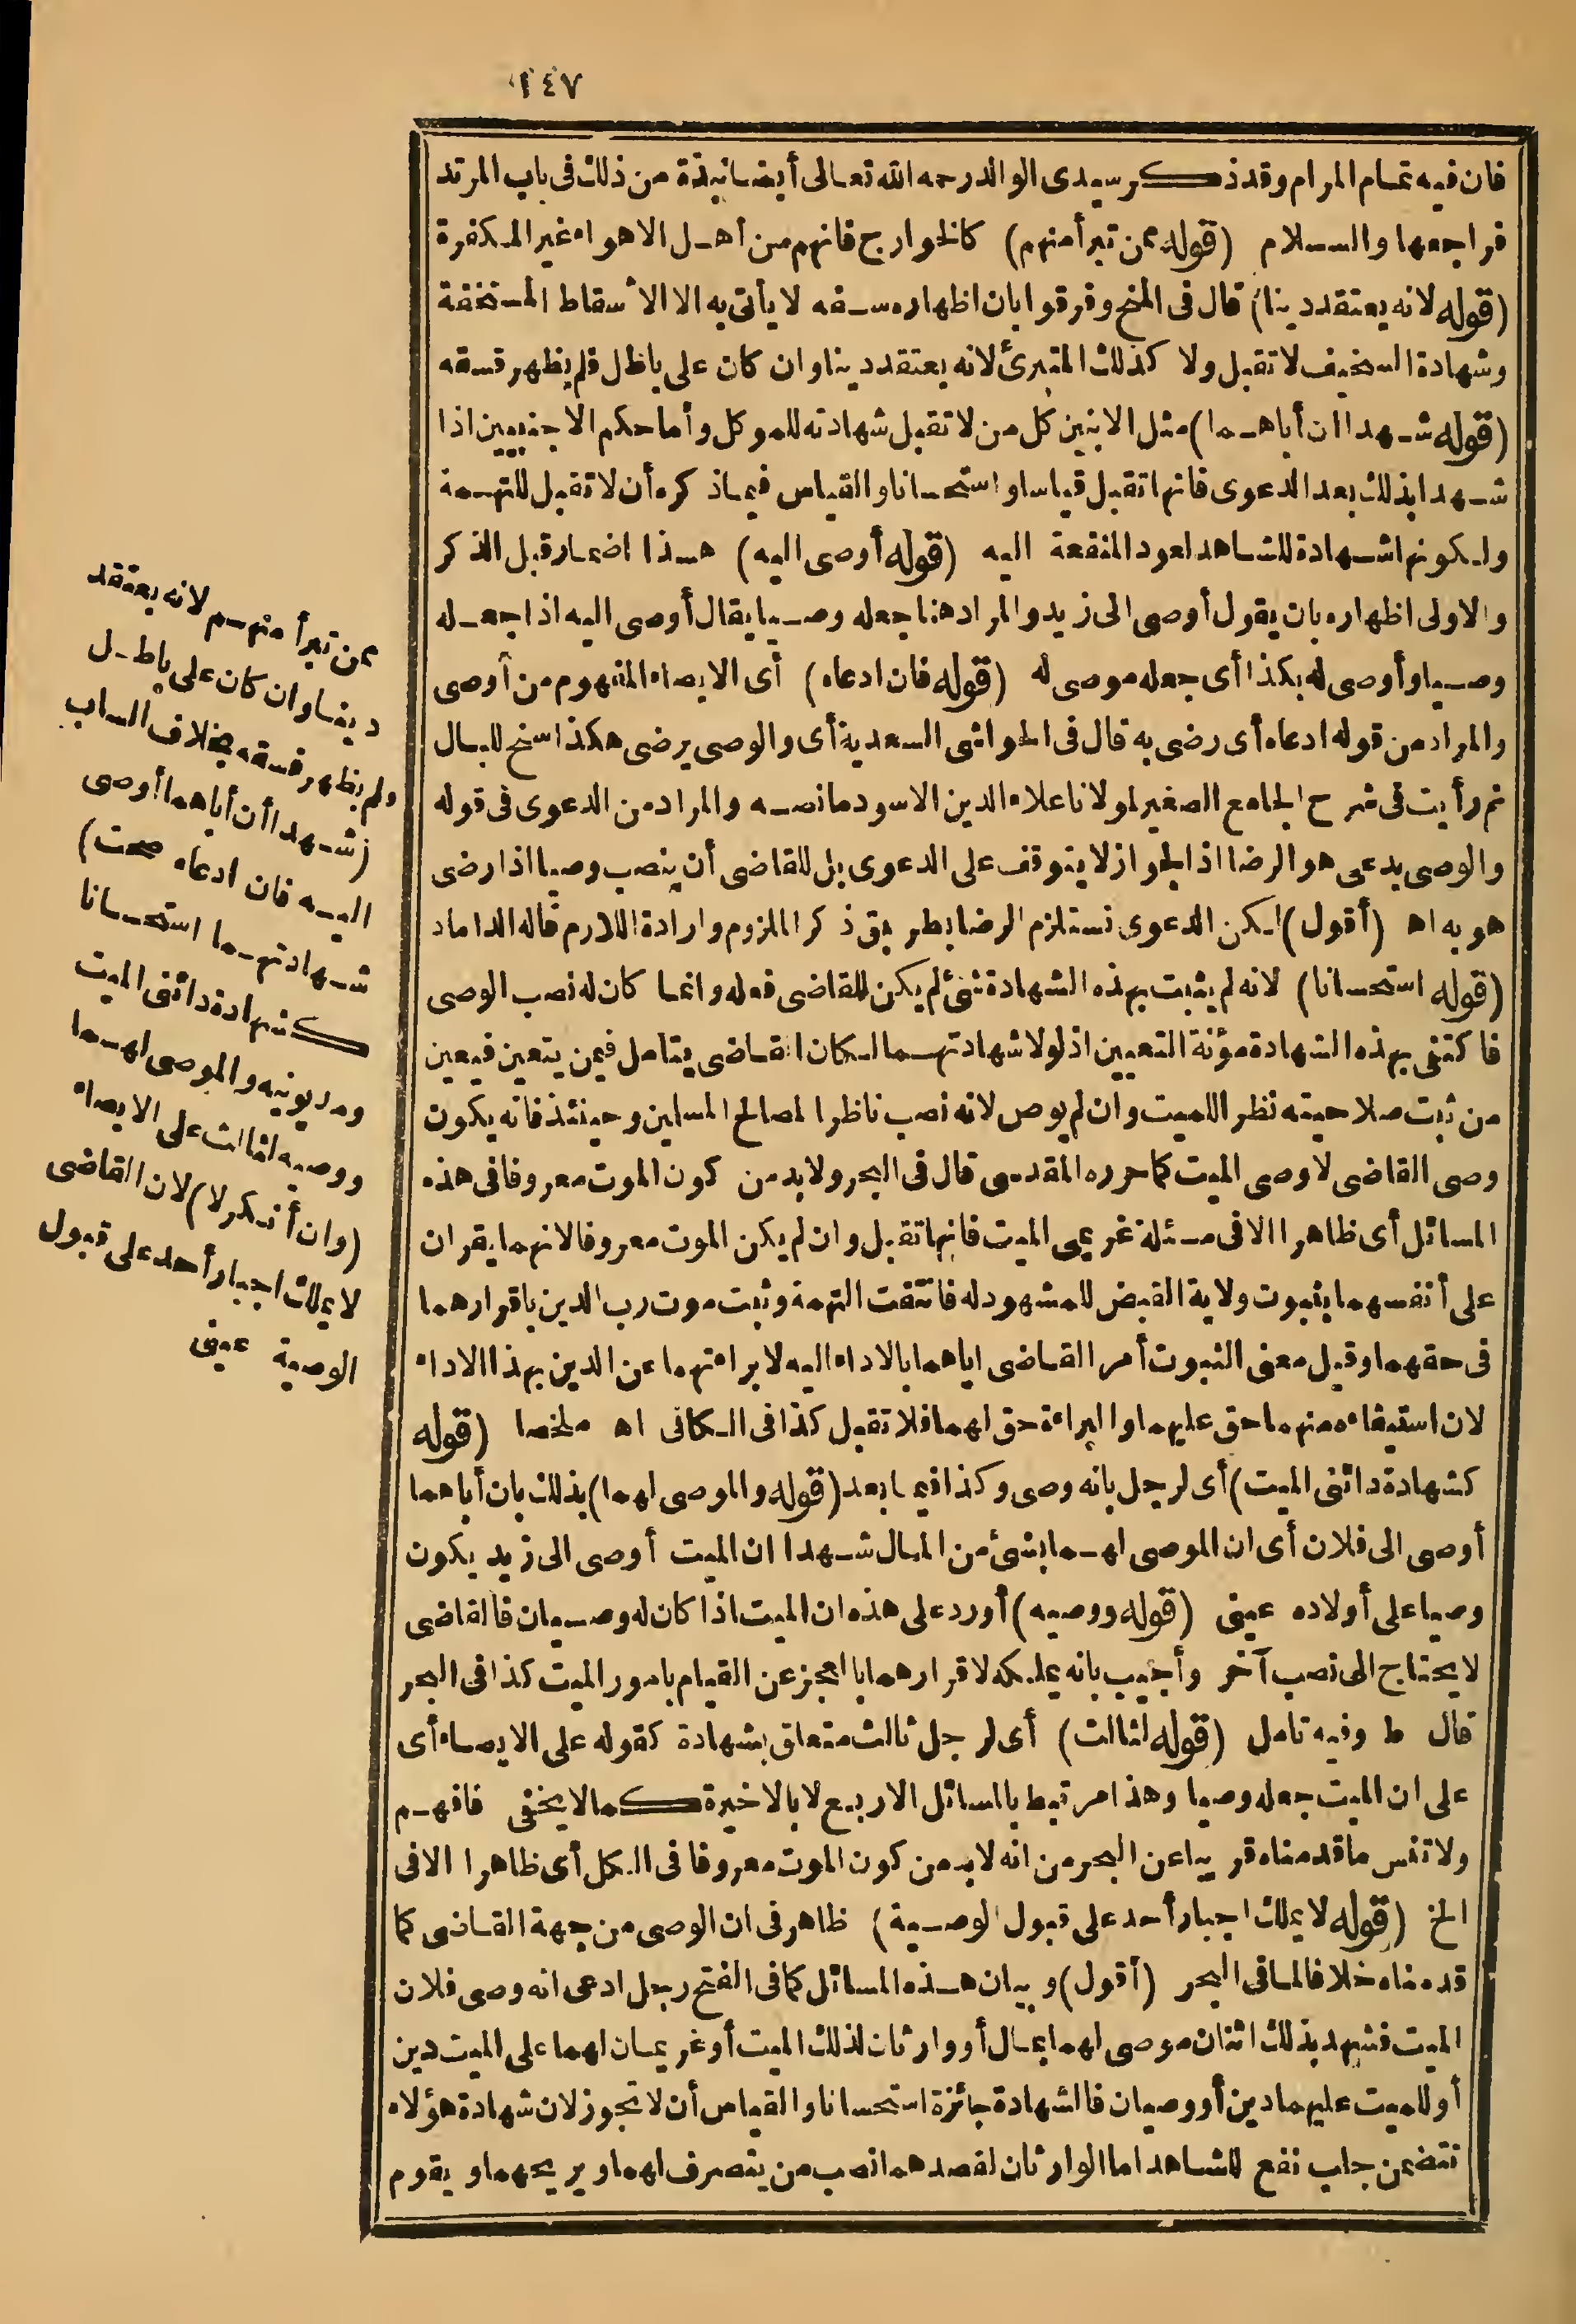 ١٤٧
فان فيه تمام المرام وقد ذكر سيدى الوالد رحمه الله تعالى أيضا نبذة من ذلك فى باب المرتد
فراجعها والسلام (قوله ممن تبرأ منهم) كالخوارج فانهم من أهل الاهواء غير المكفرة
(قوله لانه يعتقد دينا) قال فى المنح وفرقوا بان اظهاره سفه لا يأتى به الا الأسقاط المستخفة
وشهادة السخيف لا تقبل ولا كذلك المتبرئ لانه يعتقد دينا وان كان على باطل فلم يظهر فسقه
(قوله شهدا ان أباهما) مثل الابنين كل من لا تقبل شهادته للموكل وأما حكم الاجنبيين اذا
شهدا بذلك بعد الدعوى فانها تقبل قياسا واستحسانا والقياس فيما ذكره أن لا تقبل للتهمة
ولكونها شهادة للشاهد لعود المنفعة اليه (قوله أوصى اليه) هذا اضمار قبل الذكر
والاولى اظهاره بان يقول أوصى الى زيد والمراد هنا جعله وصيا يقال أوصى اليه اذا جعله
وصيا وأوصى له بكذا أى جعله موصى له (قوله فان ادعاه) أى الايصاء المفهوم من أوصى
والمراد من قوله ادعاه أى رضى به قال فى الحواشى السعدية أى والوصى يرضى هكذا سنح للبال
ثم رأيت فى شرح الجامع الصغير لمولانا علاء الدين الاسود مانصه والمراد من الدعوى فى قوله
والوصى يدعى هو الرضا اذ الجواز لا يتوقف على الدعوى بل للقاضى أن ينصب وصيا اذا رضى
هو به اه (أقول) لكن الدعوى تستلزم الرضا بطريق ذكر الملزوم وارادة اللازم قاله الداماد
(قوله استحسانا) لانه لم يثبت بهذه الشهادة شئ لم يكن للقاضى فعله وانما كان له نصب الوصى
فاكتفى بهذه الشهادة مؤنة التعيين اذ لولا شهادتهما لكان القاضى يتامل فيمن يتعين فيعين
من ثبت صلاحيته نظرا للميت وان لم يوص لانه نصب ناظرا لمصالح المسلمين وحينئذ فانه يكون
وصى القاضى لا وصى الميت كما حرره المقدسى قال فى البحر ولابد من كون الموت معروفا فى هذه
المسائل أى ظاهرا الا فى مسئلة غريمى الميت فانها تقبل وان لم يكن الموت معروفا لانهما يقران
على أنفسهما بثبوت ولاية القبض للمشهود له فانتفت التهمة وثبت موت رب الدين باقرارهما
فى حقهما وقيل معنى الثبوت أمر القاضى اياهما بالاداء اليه لا براءتهما عن الدين بهذا الاداء
لان استيفاءه منهما حق عليهما والبراءة حق لهما فلا تقبل كذا فى الكافى اه ملخصا (قوله
كشهادة دائنى الميت) أى لرجل بانه وصى وكذا فيما بعد (قوله والموصى لهما) بذلك بان أباهما
أوصى الى فلان أى ان الموصى لهما بشئ من المال شهدا ان الميت أوصى الى زيد يكون
وصيا على أولاده عينى (قوله ووصيه) أورد على هذه ان الميت اذا كان له وصيان فالقاضى
لا يحتاج الى نصب آخر وأجيب بانه يملكه لاقرارهما بالعجز عن القيام بامور الميت كذا فى البحر
قال ط وفيه تامل (قوله لثالث) أى لرجل ثالث متعلق بشهادة كقوله على الايصاء أى
على ان الميت جعله وصيا وهذا مرتبط بالمسائل الاربع لا بالاخيرة كما لا يخفى فافهم
ولا تنس ما قدمناه قريبا عن البحر من انه لابد من كون الموت معروفا فى الكل أى ظاهرا الا فى
الخ (قوله لا يملك اجبار أحد على قبول الوصية) ظاهر فى ان الوصى من جهة القاضى كما
قدمناه خلافا لما فى البحر (أقول) وبيان هذه المسائل كما فى الفتح رجل ادعى انه وصى فلان
الميت فشهد بذلك اثنان موصى لهما بمال أو وارثان لذلك الميت أو غريمان لهما على الميت دين
أو للميت عليهما دين أو وصيان فالشهادة جائزة استحسانا والقياس أن لا تجوز لان شهادة هؤلاء
تتضمن جلب نفع للشاهد اما الوارثان لقصدهما نصب من يتصرف لهما ويريحهما ويقوم
ممن تبرأ منهم لانه يعتقد
دينا وان كان على باطل
ولم يظهر فسقه بخلاف الساب
(شهدا أن أباهما أوصى
اليه فان ادعاه صحت)
شهادتهما استحسانا
كشهادة دائنى الميت
ومديونيه والموصى لهما
ووصيه لثالث على الايصاء
(وان أنكر لا) لان القاضى
لا يملك اجبار أحد على قبول
الوصية عينى